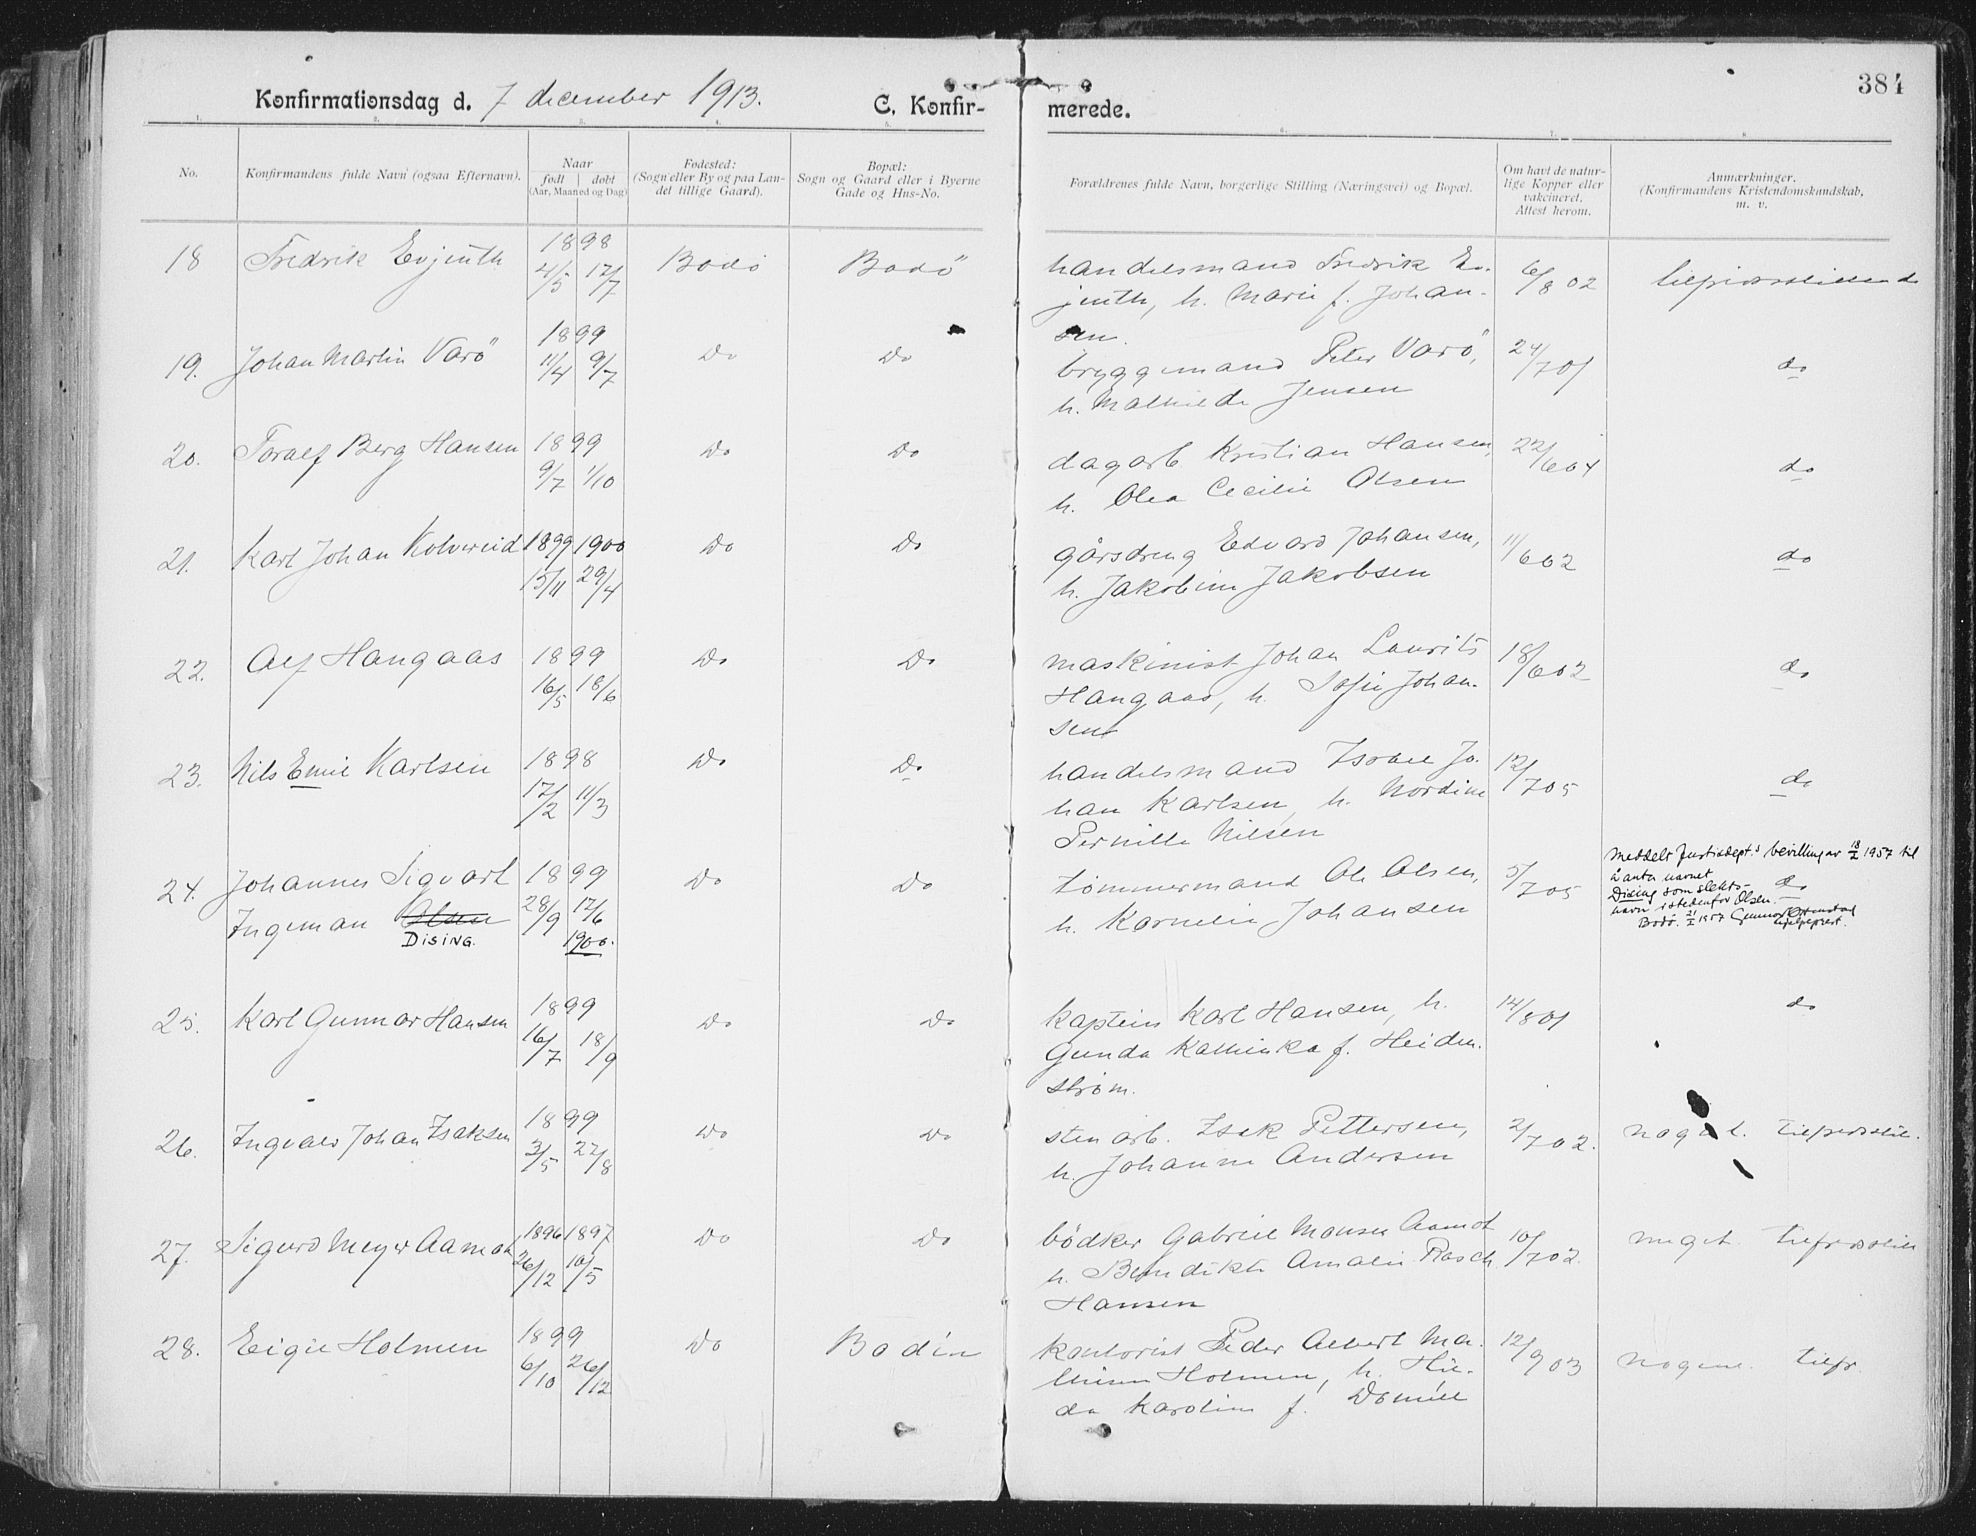 384
Konfirmationsdag d. 7 december 1913.
C. Konfir- merede.
1. 2. 3. 4. 5. 6. 7. 8.
No.
Konfirmandens fulde Navn (ogsaa Efternavn).
Naar
født | døbt
(Aar, Maaned og Dag)
Fødested:
(Sogn eller By og paa Lan-
det tillige Gaard).
Bopæl:
Sogn og Gaard eller i Byerne
Gade og Hus-No.
Forældrenes fulde Navn, borgerlige Stilling (Næringsvei) og Bopæl.
Om havt de natur-
lige Kopper eller
vakcineret.
Attest herom.
Anmærkninger.
(Konfirmandens Kristendomskundskab,
m. v.
18 Fredrik Evjenth 1898 4/5 17/7 Bodö Bodö
handelsmand Fredrik Ev-
jenth, h. Marie f. Johan-
sen.
6/8 02
19. Johan Martin Varö 1899 11/4 9/7 Do Do
bryggemand Peter Varö,
h. Mathilde Jensen
24/7 01 do
20. Toralf Berg Hansen 1899 9/7 1/10 Do Do
dagarb. Kristian Hansen,
h. Olea Cecilie Olsen
22/6 04 do
21. Karl Johan Kolvereid 1899 15/11 1900 29/4 Do Do
gårsdreng Edvard Johansen,
h. Jakobine Jakobsen
11/6 02 do
22. Alf Hangaas 1899 16/5 18/6 Do Do
maskinist Johan Laurits
Hangaas, h. Sofie Johan-
sen
18/6 02 do
23. Nils Emil Karlsen 1898 17/2 11/3 Do Do
handelsmand Israel Jo-
han Karlsen, h. Nordine
Pernille Nilsen
12/7 05 do
24. Johannes Sigvart
Ingeman Olsen
DISING.
1899 28/9 17/6 1900. Do Do
tømmermand Ole Olsen,
h. Kornelie Johansen
5/7 05 do
Meddelt Justisdept.s bevilling av 18/2 1957 til
å anta navnet
Dising som slekts-
navn istedenfor Olsen.
Bodø. 1957 Gunnar
hjelpeprest.
25. Karl Gunnar Hansen 1899 16/7 18/9 Do Do
kaptein Karl Hansen, h.
Gunda Kathinka f. Heiden-
strøm.
14/8 01 do
26. Ingvald Johan Isaksen 1899 3/5 27/8 Do Do
stenarb. Isak Pettersen,
h. Johanne Andersen
2/7 02.
27. Sigurd Meyer Aamot 1896 26/12 1897 10/5 Do Do
bödker Gabriel Monsen Aamot
h. Benedikte Amalie Rasch
Hansen
10/7 02. meget tilfredsstill
28. Eigil Holmen 1899 6/10 26/12 Do Bodin
kontorist Peder Albert Ma-
thisen Holmen, h. Hil-
da Karoline f.
12/9 03 nogenl. tilfr.